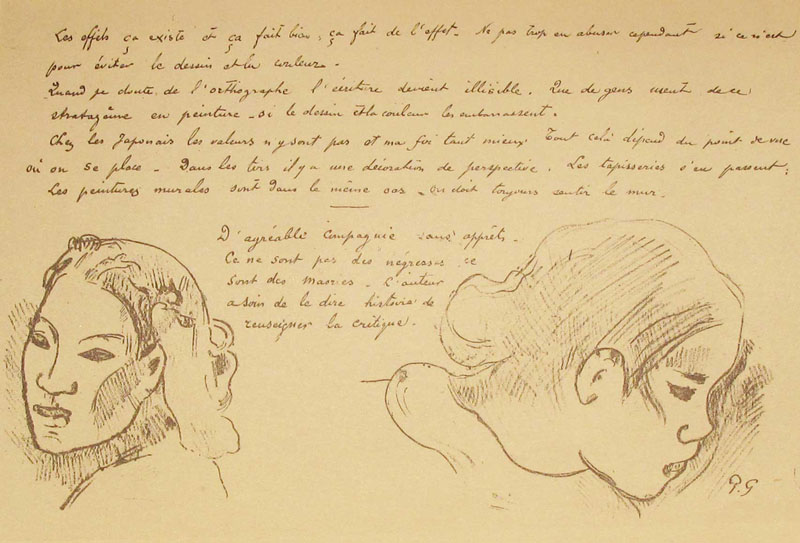 Les effets ça existe et ça fait bien, ça fait de l'effet. Ne pas trop en abuser cependant si ce n'est
pour éviter le dessin et la couleur.
Quand je doute de l'orthographe l'écriture devient illisible. Que de gens usent de ce
stratagème en peinture - si le dessin et la couleur les embarrassent.
Chez les Japonais les valeurs n'y sont pas et ma foi tant mieux Tout celà dépend du point de vue
où on se place - Dans les tirs il y a une décoration de perspective. Les tapisseries s'en passent;
Les peintures murales sont dans le même cas - on doit toujours sentir le mur.
D'agréable compagnie sans apprêts.
Ce ne sont pas des négresses ce
sont des Maories - L'auteur
a soin de le dire histoire de
renseigner la critique.
P.G